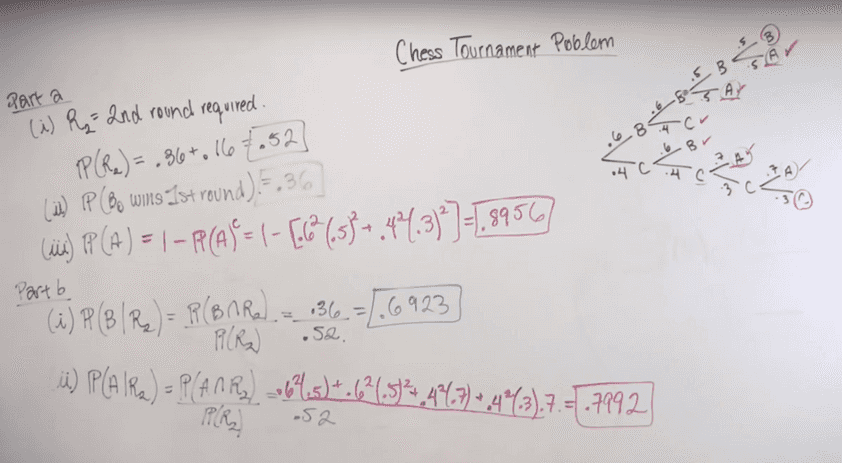 Chess Tournament Poblem
Part a
(i) R₂ = 2nd round required.
P(R₂) = .36 + .16 = .52
(ii) P(B₀ wins 1st round) = .36
(iii) P(A) = 1 - P(A)ᶜ = 1 - [.6²(.5)² + .4²(.3)²] = .8956
Part b
(i) P(B|R₂) = P(B∩R₂) / P(R₂) = .36 / .52. = .6923
ii) P(A|R₂) = P(A∩R₂) / P(R₂) = .6²(.5) + .6²(.5)² + .4²(.7) + .4²(.3).7. / .52 = .7992
.5 B
.5 B .5 A
.6 B .5 A
.6 B .4 C
.6 B
.4 C .4 C .7 A
.3 C .7 A
.3 C